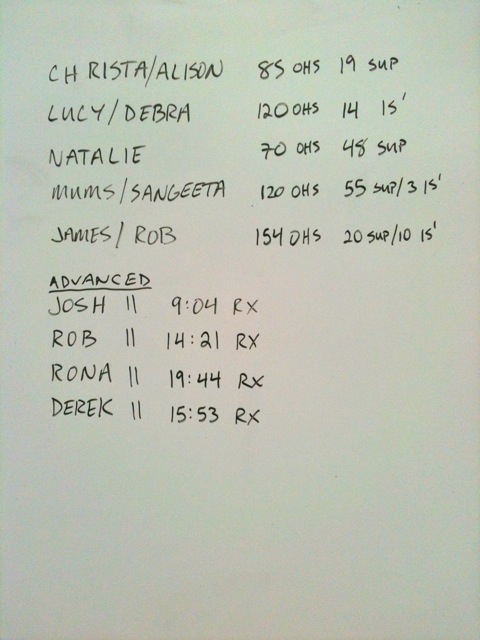 CHRISTA/ALISON 85 OHS 19 SUP
LUCY/DEBRA 120 OHS 14 15'
NATALIE 70 OHS 48 SUP
MUMS/SANGEETA 120 OHS 55 SUP/3 15'
JAMES/ROB 154 OHS 20 SUP/10 15'
ADVANCED
JOSH || 9:04 RX
ROB || 14:21 RX
RONA || 19:44 RX
DEREK || 15:53 RX